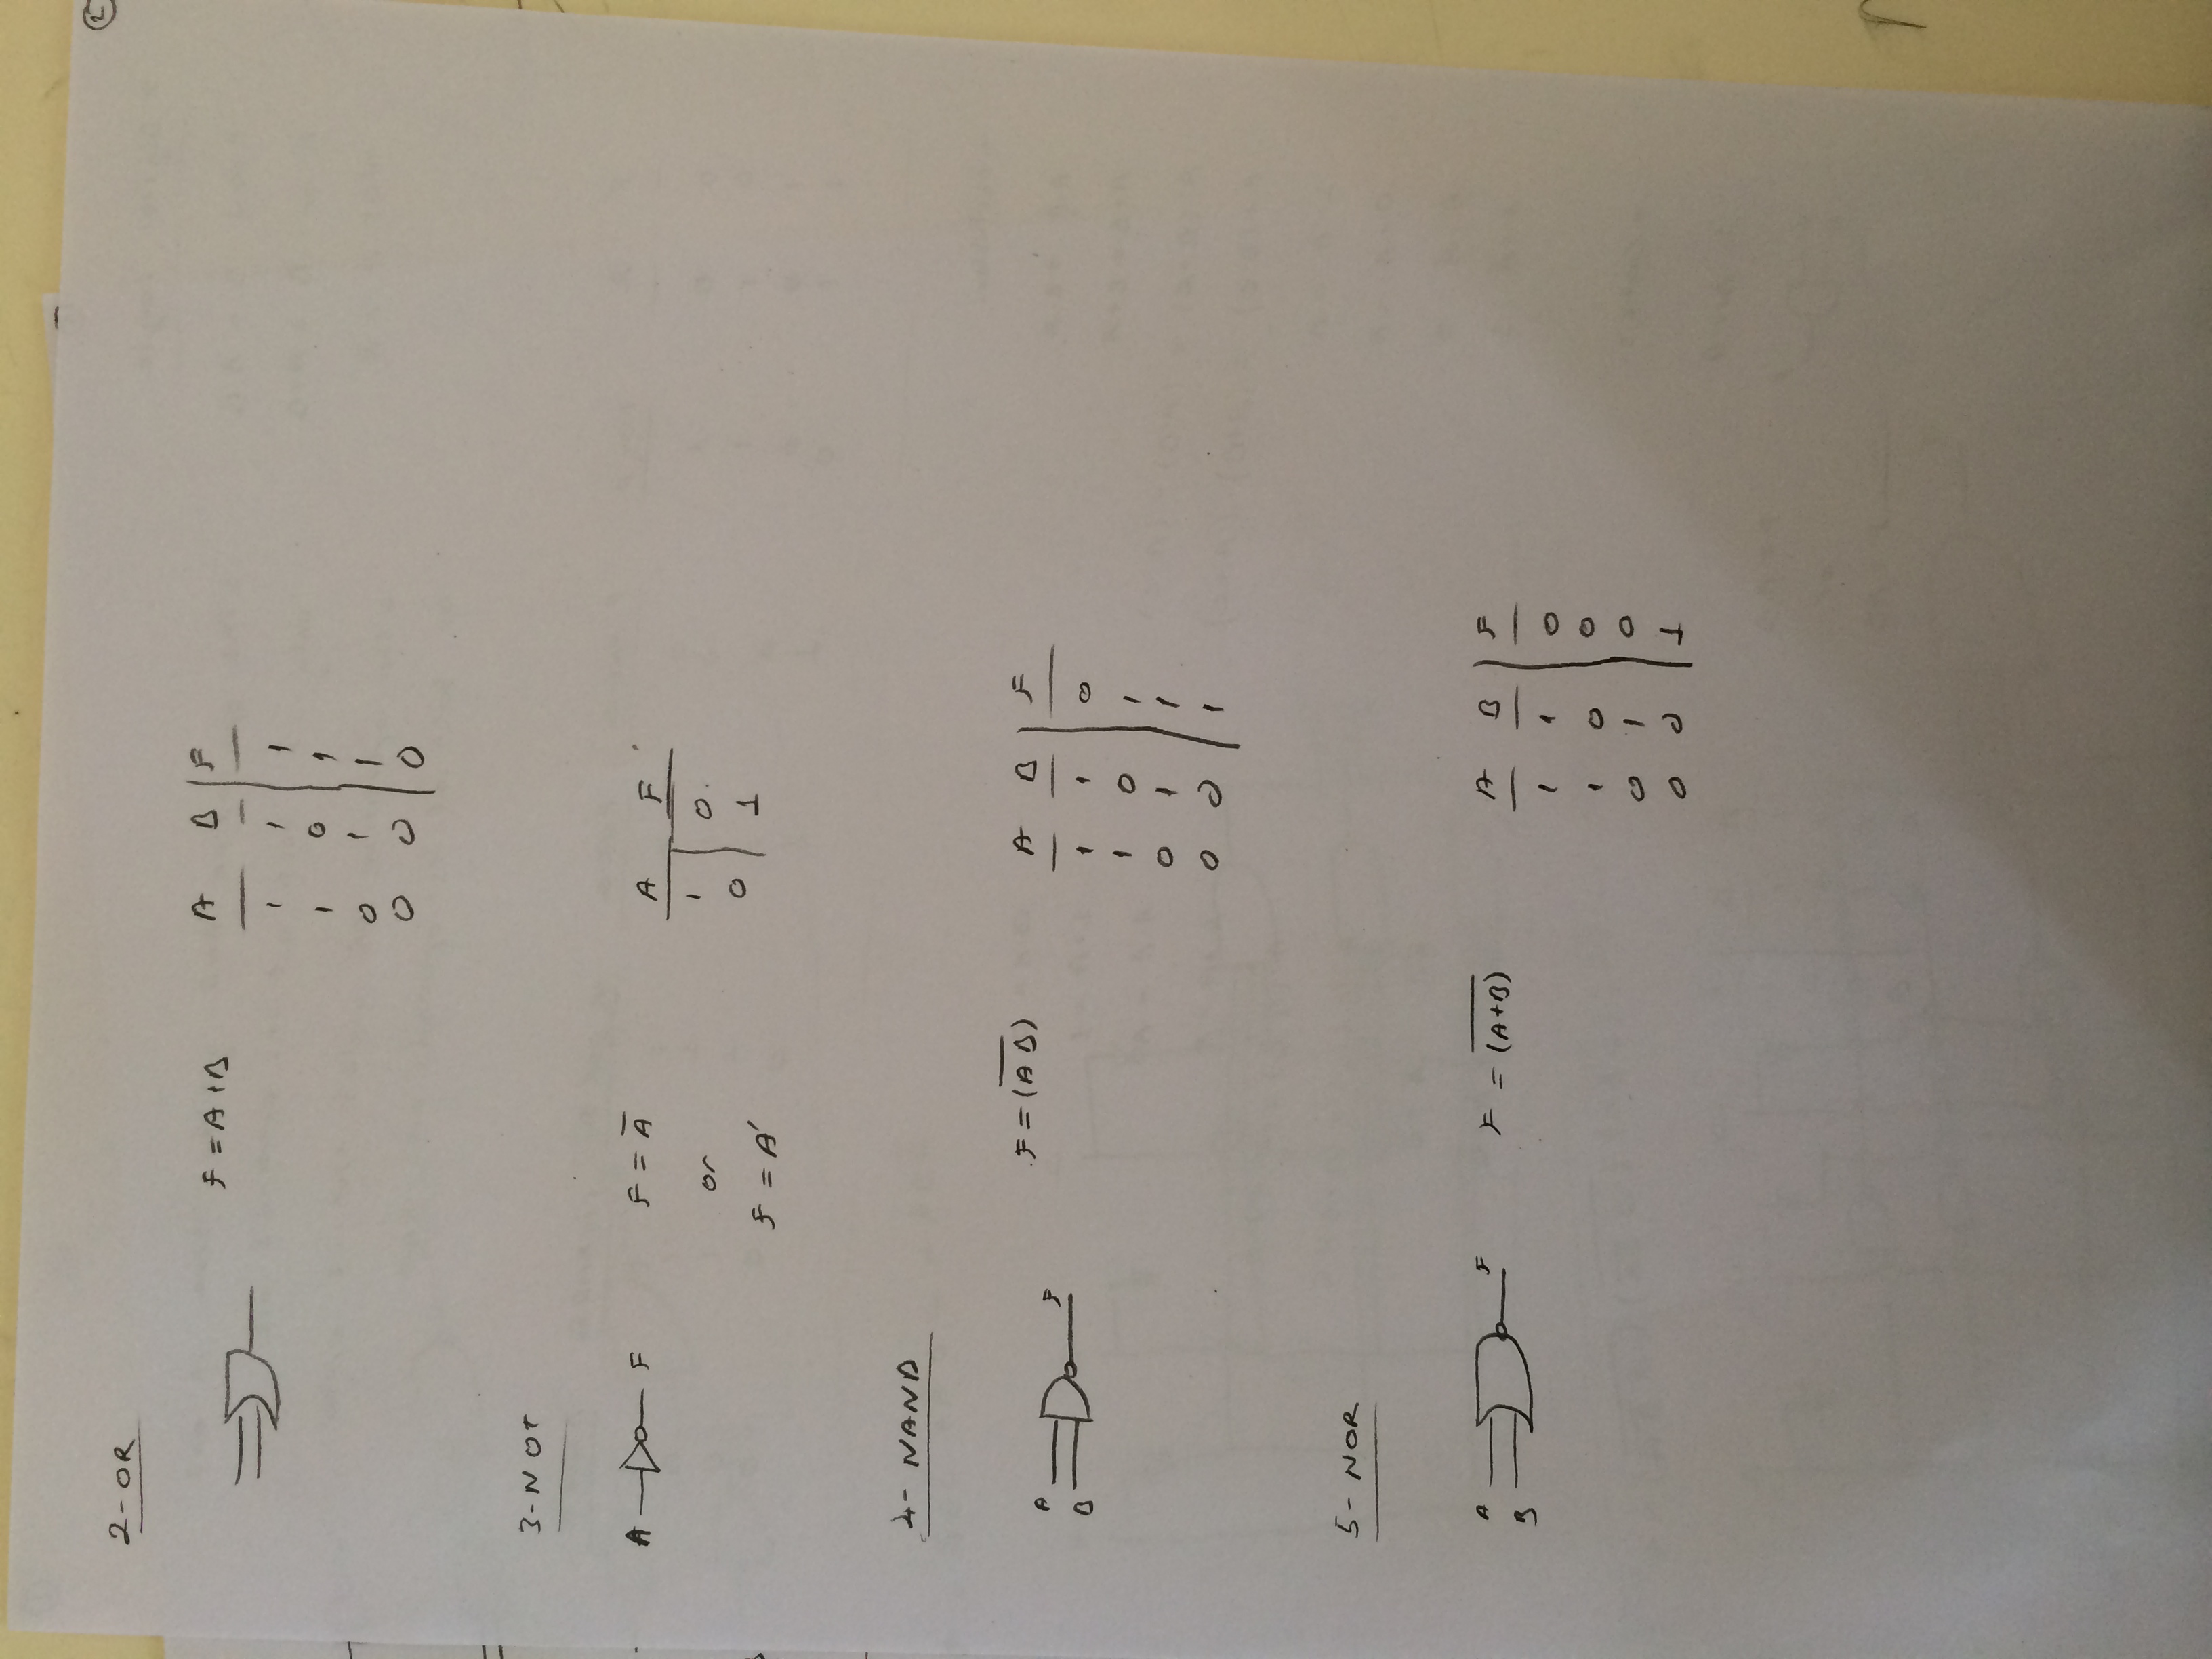 2
2-OR
F = A+B
A B F
1 1 1
1 0 1
0 1 1
0 0 0
3-NOT
A F
F = A̅
or
F = A'
A F
1 0
0 1
4- NAND
A
B
F
F = (A̅B̅)
A B F
1 1 0
1 0 1
0 1 1
0 0 1
5- NOR
A
B
F
F = (A+B)̅
A B F
1 1 0
1 0 0
0 1 0
0 0 1